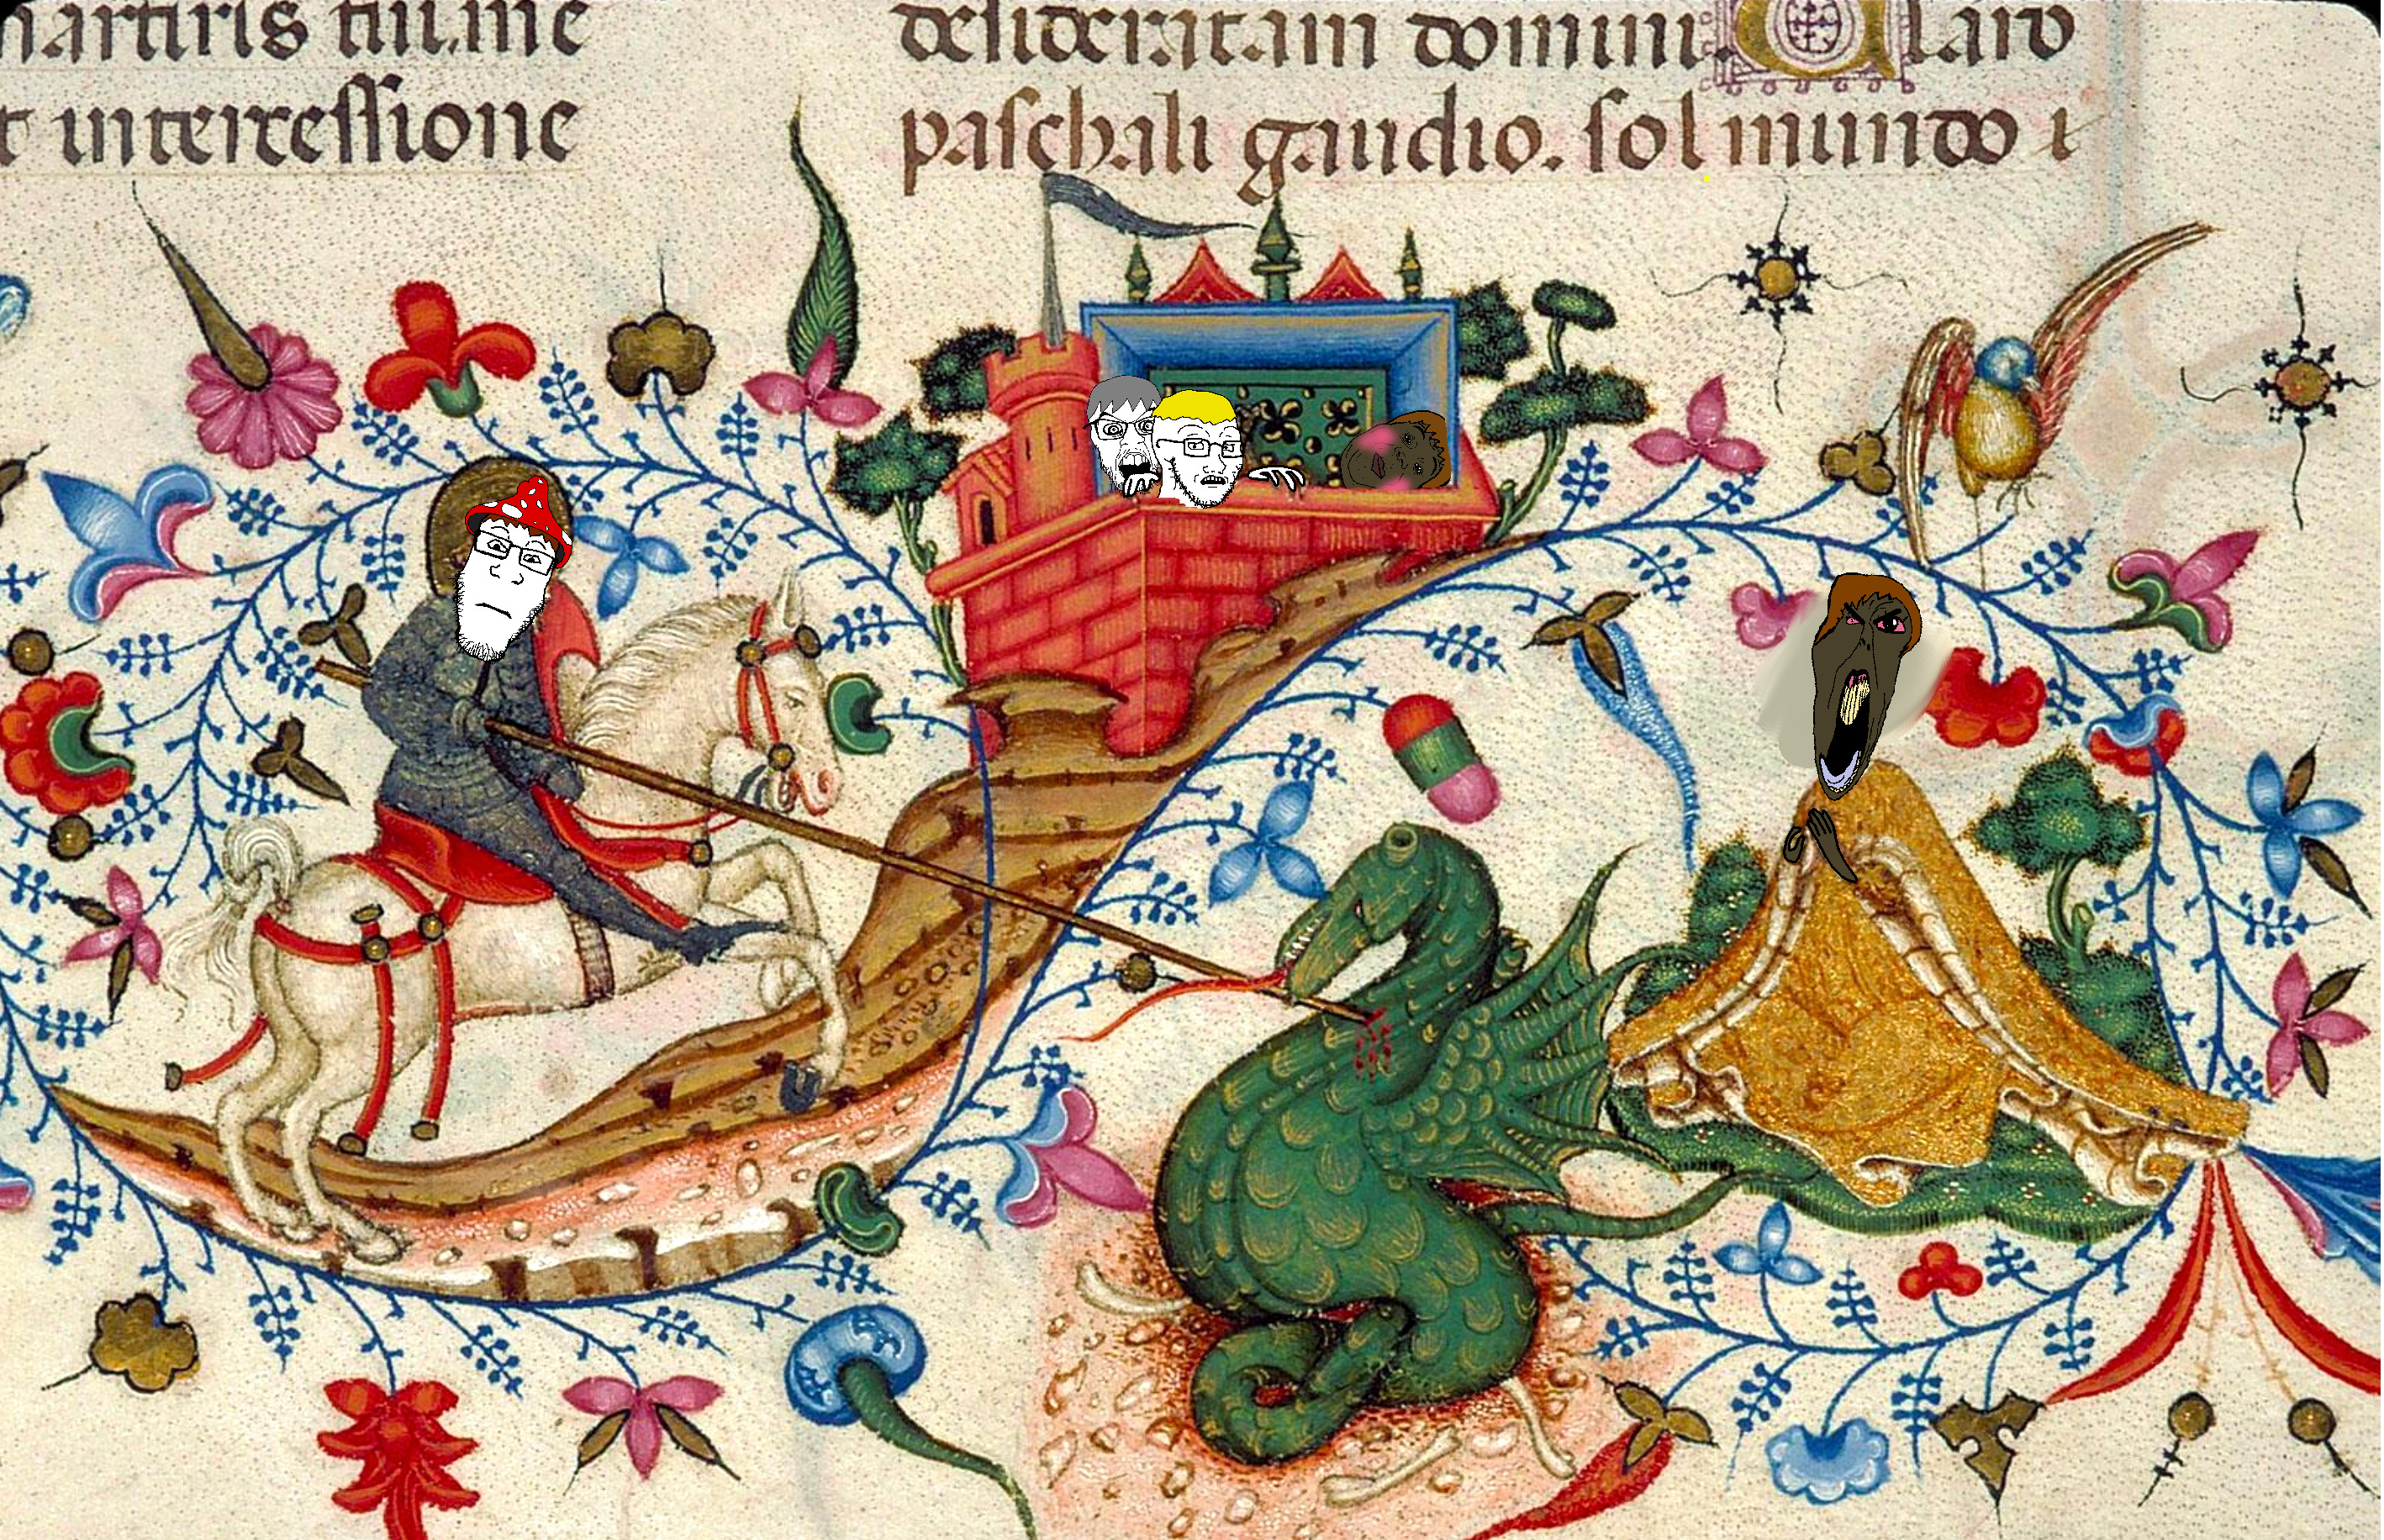 martiris tui.me
t intercessione
desideratam domini. Claro
paschali gaudio. sol mundo